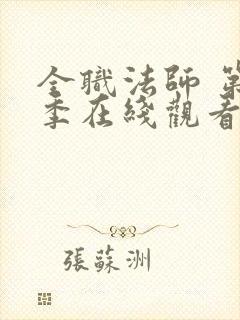 全職法師 第
季在綫觀看
張蘇洲